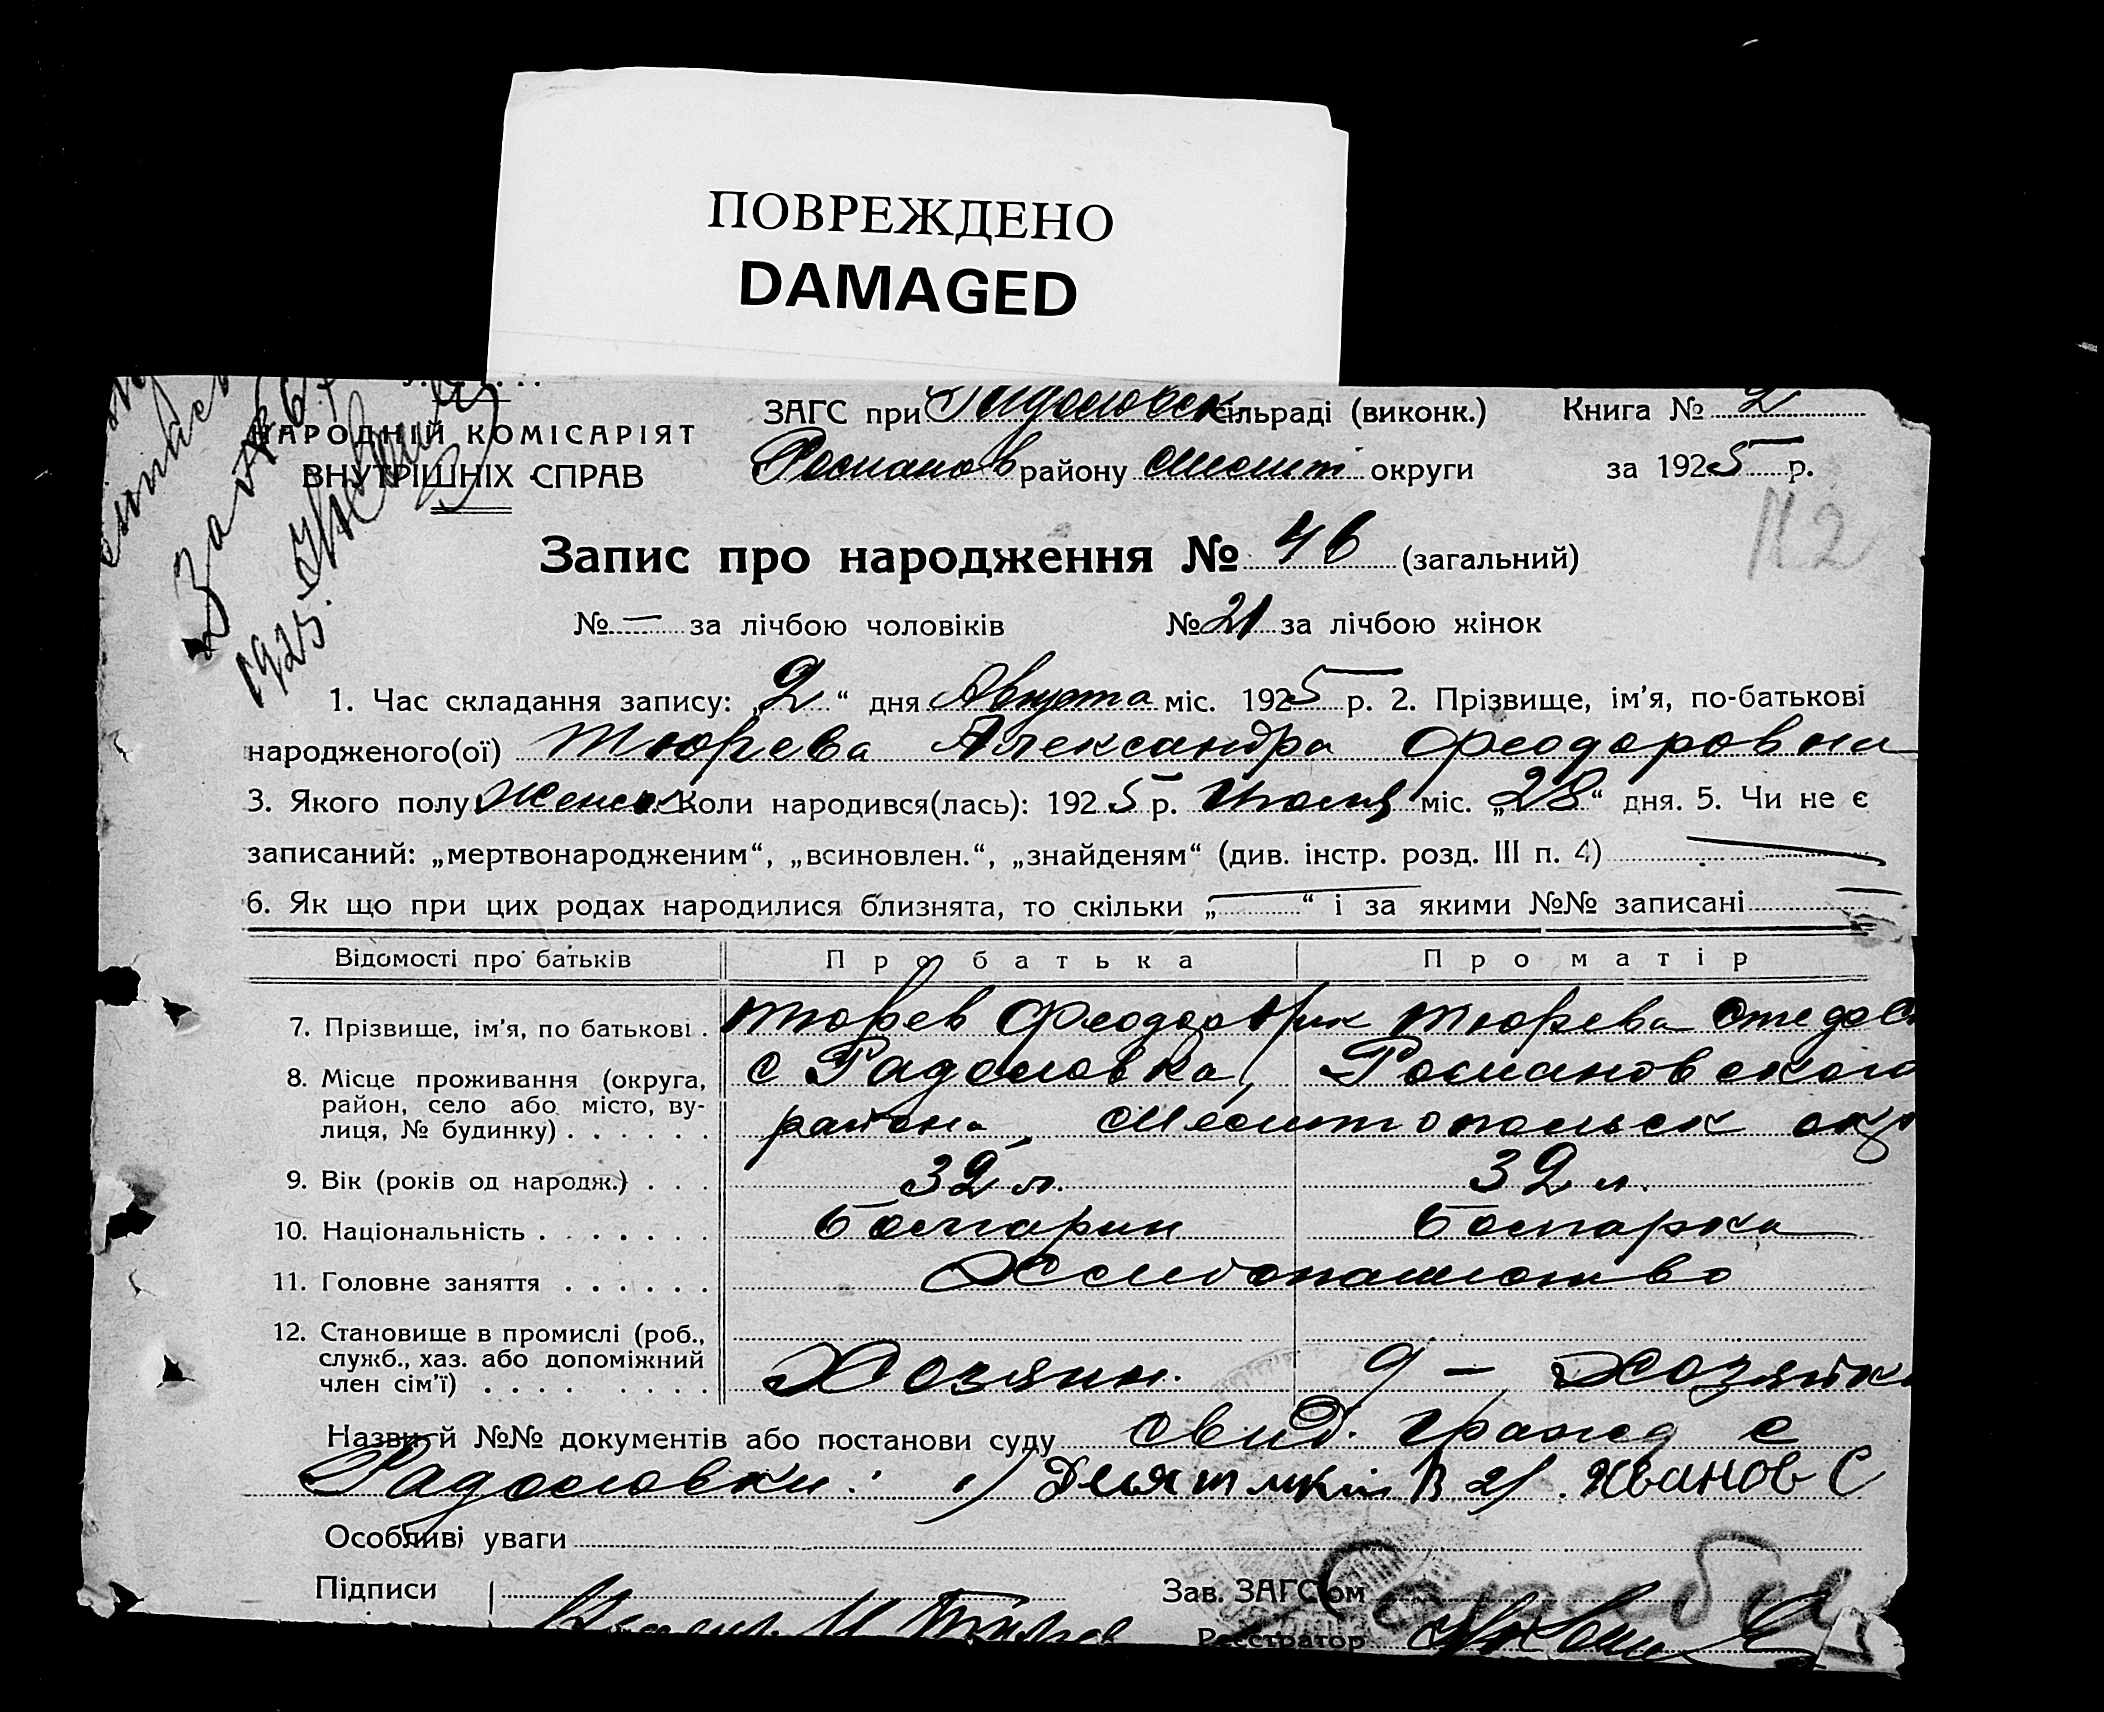 ПОВРЕЖДЕНО
DAMAGED
НАРОДНІЙ КОМІСАРІЯТ
ВНУТРІШНІХ СПРАВ
ЗАГС при Радоловск сільраді (виконк.) Книга № 2
Романов району Мелит округи за 1925 р.
1925.
Запис про народження № 46 (загальний)
№ — за лічбою чоловіків № 21 за лічбою жінок
N2
1. Час складання запису: „2“ дня Августа міс. 1925 р. 2. Прізвище, ім’я, по-батькові
народженого(ої) Тюрева Александра Феодоровна
3. Якого полу Женск Коли народився(лась): 1925 р. Июля міс. „28“ дня. 5. Чи не є
записаний: „мертвонародженим“, „всиновлен.“, „знайденям“ (див. інстр. розд. III п. 4) —
6. Як що при цих родах народилися близнята, то скільки „—“ і за якими №№ записані —
Відомості про батьків Про батька Про матір
7. Прізвище, ім’я, по батькові . Тюрев Феодор Тюрева
8. Місце проживання (округа, с Радоловка, Романовского
район, село або місто, ву-
лиця, № будинку) . . . . . . района, Мелитопольск окр
9. Вік (років од народж.) . . . 32 л. 32 л.
10. Національність . . . . . . . болгарин болгарка
11. Головне заняття . . . . . . Хлебопашество
12. Становище в промислі (роб.,
служб., хаз. або допоміжний
член сім’ї) . . . . . . . . Хозяин. Хозяйка
Назви й №№ документів або постанови суду свид. гражд с
Радоловки: 1) В 2) Иванов С
Особливі уваги
Підписи Зав. ЗАГС’ом
Реєстратор